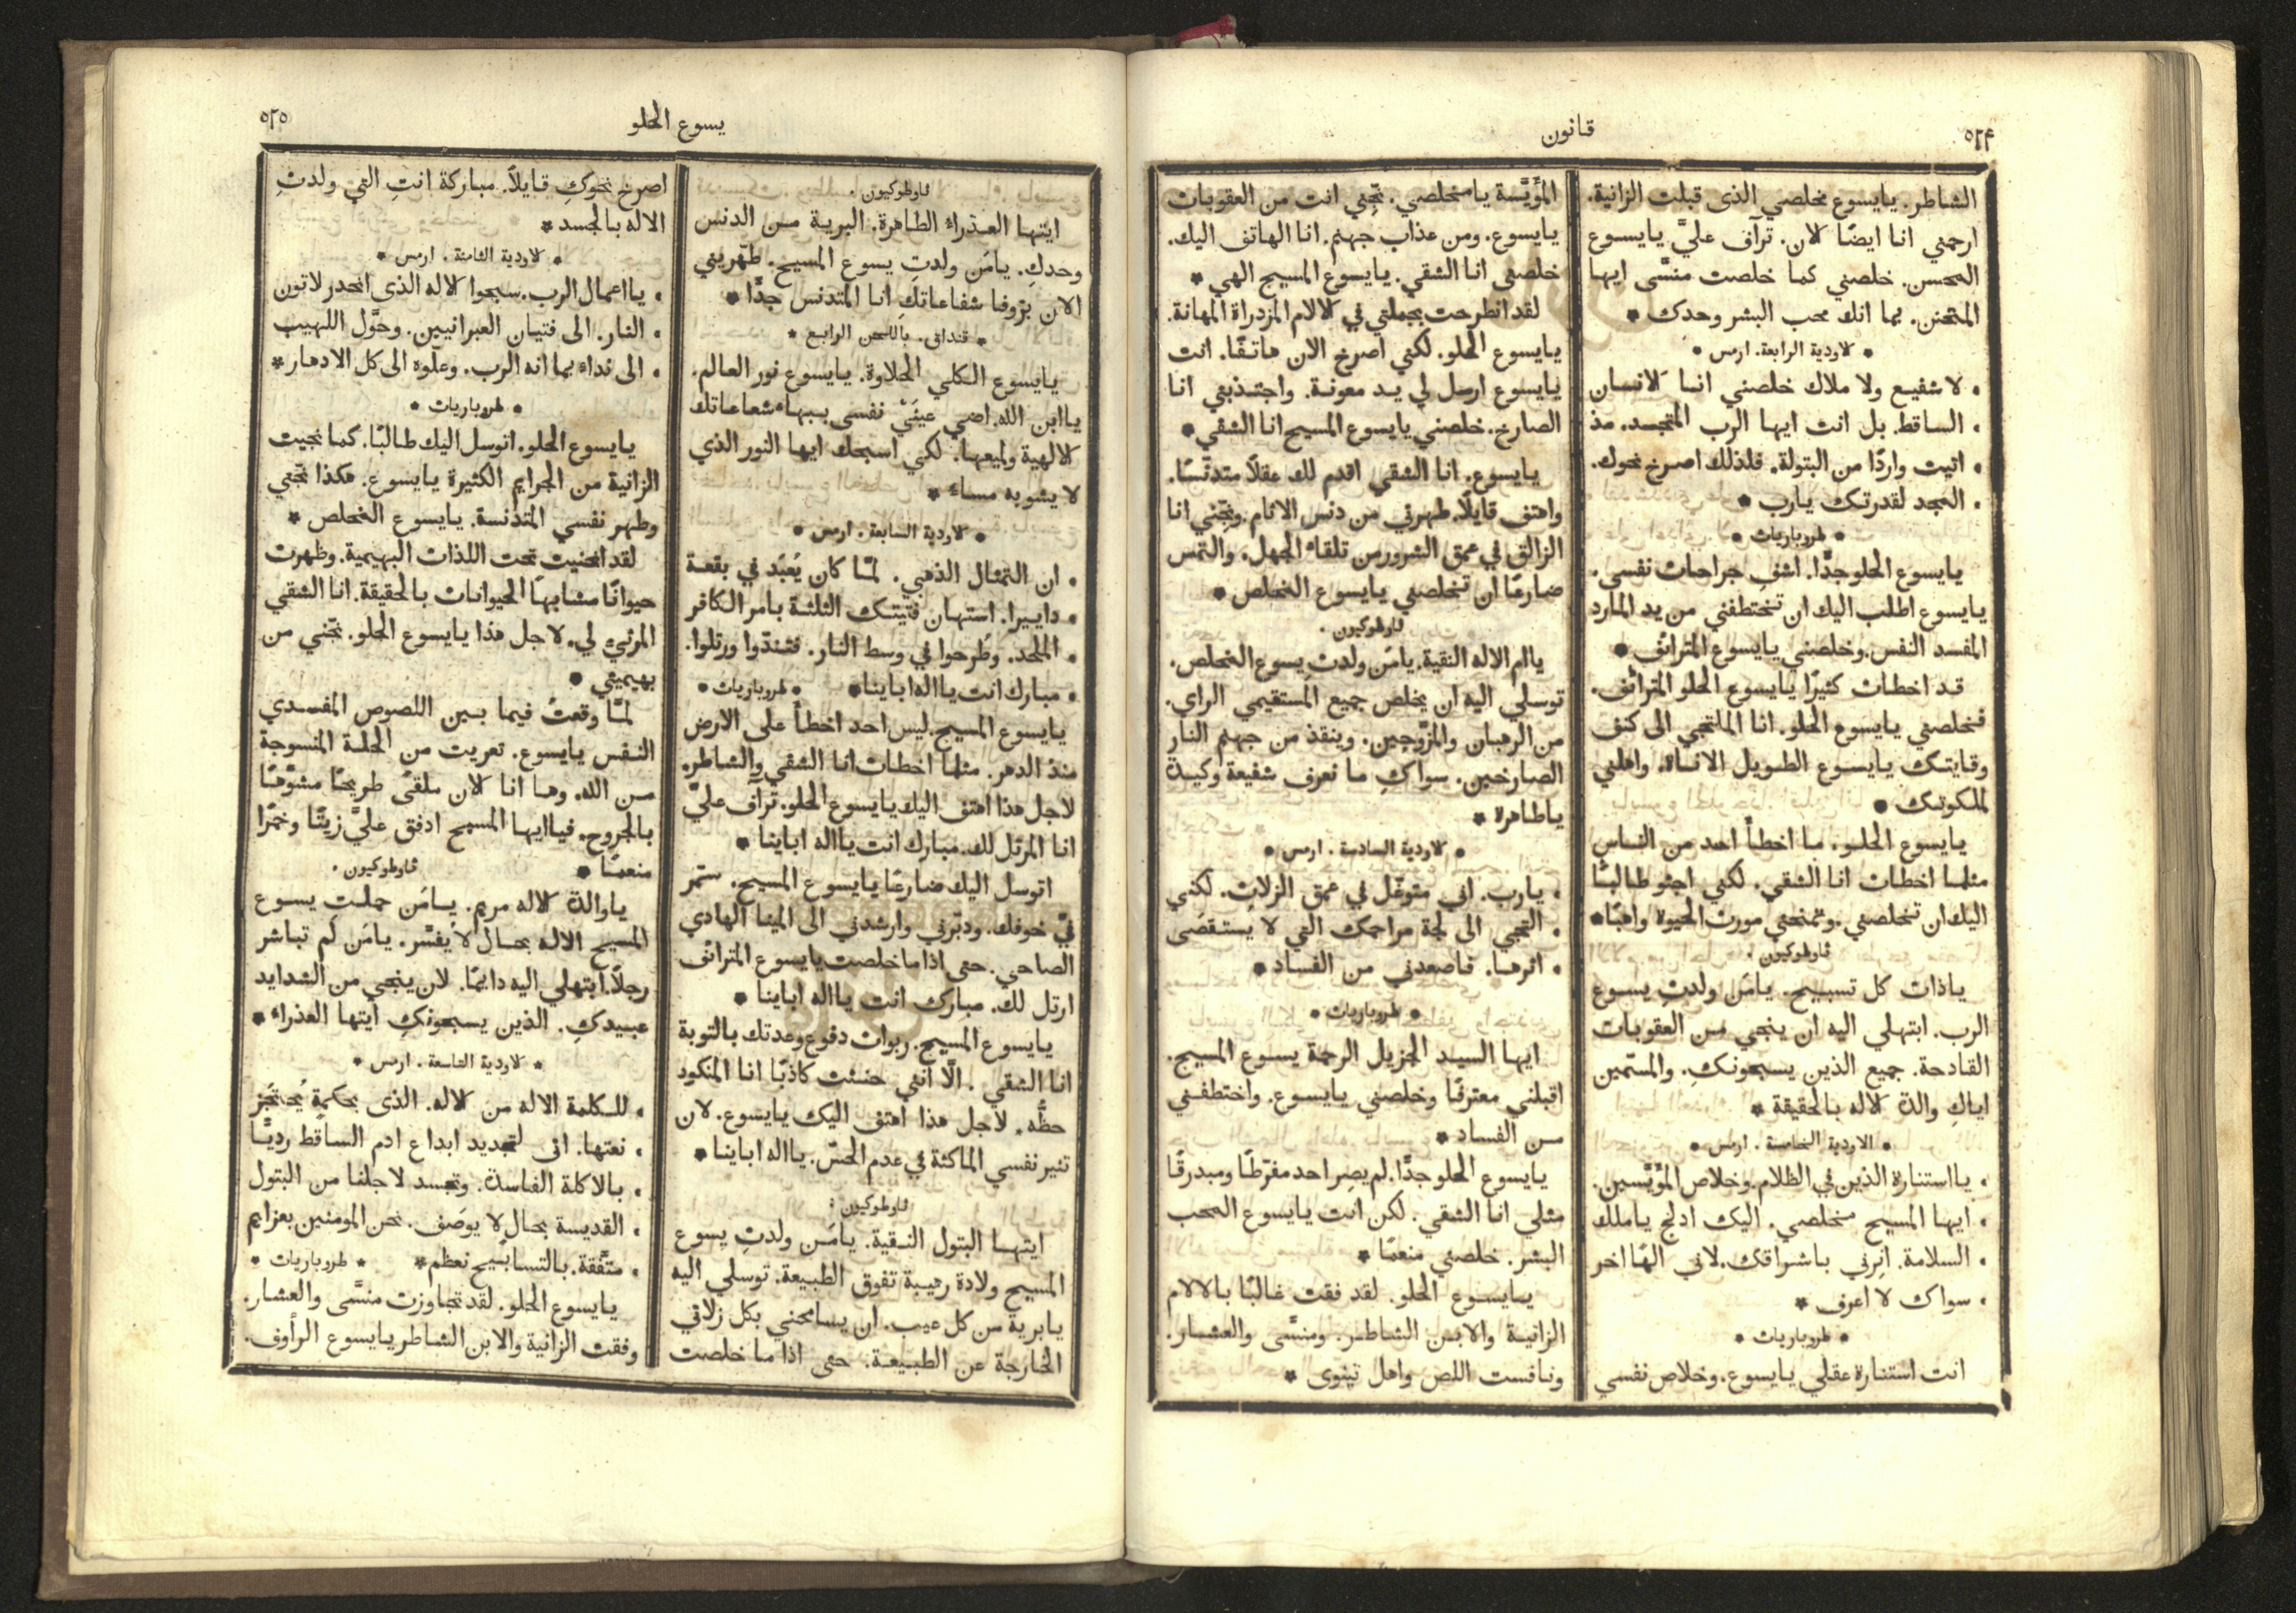 ٥٢٤
قانون
الشاطر. يايسوع مخلصي الذى قبلت الزانية.
ارحمني انا ايضًا لان. ترآف عليَّ يايسوع
المحسن. خلصني كما خلصت منسَّى ايها
المتحنن. بما انك محب البشر وحدك *
* لاودية الرابعة. ارمس *
• لا شفيع ولا ملاك خلصني انا لانسان
• الساقط. بل انت ايها الرب المتجسد. مذ
• اتيت واردًا من البتولة. فلذلك اصرخ نحوك.
• المجد لقدرتك يارب *
* طروباريات *
يايسوع الحلو جدًّا. اشفِ جراحات نفسى.
يايسوع اطلب اليك ان تختطفني من يد المارد
المفسد النفس. وخلصني يايسوع المترائف *
قد اخطات كثيرًا يايسوع الحلو المترائف.
فخلصني يايسوع الحلو. انا الملتجي الى كنف
وقايتك يايسوع الطويل الاناة. واهلني
لملكوتك *
يايسوع الحلو. ما اخطأ احد من الناس
مثلما اخطات انا الشقي. لكني اجثو طالبًا
اليك ان تخلصني. وتمنحني مورث الحيوة واهبًا *
ثاوطوكيون.
ياذات كل تسبيح. يامَن ولدتِ يسوع
الرب. ابتهلي اليه ان ينجي من العقوبات
القادحة. جميع الذين يسبحونكِ. والمسمّين
اياكِ والدة لاله بالحقيقة *
* الاودية الخامسة. ارمس *
• يااستنارة الذين في الظلام. وخلاص المؤيَّسين.
• ايها المسيح مخلصي. اليك ادلج ياملك
• السلامة. انِرني باشراقك. لاني الهًا اخر
• سواك لا اعرف *
* طروباريات *
انت استنارة عقلي يايسوع. وخلاص نفسي
المؤيَّسة يامخلصي. نجِّني انت من العقوبات
يايسوع. ومن عذاب جهنم. انا الهاتف اليك.
خلصنى انا الشقي. يايسوع المسيح الهي *
لقد انطرحت بجملتي في لالام المزدراة المهانة.
يايسوع الحلو. لكني اصرخ الان هاتفًا. انت
يايسوع ارسل لي يد معونة. واجتذبني انا
الصارخ. خلصني يايسوع المسيح انا الشقي *
يايسوع. انا الشقي اقدم لك عقلًا متدنّسًا.
واهتف قايلًا. طهرني من دنس الاثام. ونجّني انا
الزالق في عمق الشرور من تلقاء الجهل. والتمس
ضارعًا ان تخلصني يايسوع المخلص *
ثاوطوكيون.
ياام الاله النقية. يامَن ولدتِ يسوع المخلص.
توسلي اليه ان يخلص جميع المستقيمي الراي.
من الرهبان والمزَّوجين. وينقذ من جهنم النار
الصارخين. سواكِ ما نعرف شفيعة وكيدة
ياطاهرة *
* لاودية السادسة. ارمس *
• يارب. اني متوغّل في عمق الزلات. لكني
• التجي الى لجة مراحمك التي لا يستقصَى
• اثرها. فاصعدني من الفساد *
* طروباريات *
ايها السيد الجزيل الرحمة يسوع المسيح.
اقبلني معترفًا وخلصني يايسوع. واختطفني
من الفساد *
يايسوع الحلو جدًّا. لم يصِر احد مفرّطًا ومبدرقًا
مثلي انا الشقي. لكن انت يايسوع المحب
البشر. خلصني منعمًا *
يايسوع الحلو. لقد فقت غالبًا بالالام
الزانية والابن الشاطر. ومنسَّى والعشار.
ونافست اللص واهل نينوى *
يسوع الحلو
٥٢٥
ثاوطوكيون.
ايتها العذراء الطاهرة. البرية من الدنس
وحدكِ. يامَن ولدتِ يسوع المسيح. طهّريني
الان بزوفا شفاعاتكِ انا المتدنس جدًّا *
* قنداق. باللحن الرابع *
يايسوع الكلي الحلاوة. يايسوع نور العالم.
ياابن الله. اضي عينَيْ نفسى ببهاء شعاعاتك
لالهية ولميعها. لكي اسبحك ايها النور الذي
لا يشوبه مساء *
* لاودية السابعة. ارمس *
• ان التمثال الذهبي. لمّا كان يُعبَد في بقعة
• داييرا. استهان فتيتك الثلثة بامر الكافر
• الملحد. وطُرحوا في وسط النار. فتندّوا ورتلوا.
• مبارك انت يااله اباينا * * طروباريات *
يايسوع المسيح. ليس احد اخطأ على الارض
منذ الدهر. مثلما اخطات انا الشقي والشاطر.
لاجل هذا اهتف اليك يايسوع الحلو. ترآف عليّ
انا المرتل لك. مبارك انت يااله اباينا *
اتوسل اليك ضارعًا يايسوع المسيح. سمّر
فيَّ خوفك. ودبّرني وارشدني الى المينا الهادي
الصاحي. حتى اذا ما خلصت يايسوع المترائف
ارتل لك. مبارك انت يااله اباينا *
يايسوع المسيح. ربوات دفوع وعدتك بالتوبة
انا الشقي. الَّا انني حنثت كاذبًا انا المنكود
حظُّه. لاجل هذا اهتف اليك يايسوع. لان
تنير نفسي الماكثة في عدم الحسّ. يااله اباينا *
ثاوطوكيون:
ايتها البتول النقية. يامَن ولدتِ يسوع
المسيح ولادة رهيبة تفوق الطبيعة. توسلي اليه
يابرية من كل عيب. ان يسامحني بكل زلاتي
الخارجة عن الطبيعة. حتى اذا ما خلصت
اصرخ نحوكِ قايلاً. مباركة انتِ التي ولدتِ
الاله بالجسد *
* لاودية الثامنة. ارمس *
• يااعمال الرب. سبحوا لاله الذى انحدر لاتون
• النار. الى فتيان العبرانيين. وحوَّل اللهيب
• الى نداء بما انه الرب. وعلّوه الى كل الادهار *
* طروباريات *
يايسوع الحلو. اتوسل اليك طالبًا. كما نجيت
الزانية من الجرايم الكثيرة يايسوع. هكذا نجّني
وطهر نفسي المتدنسة. يايسوع المخلص *
لقد انحنيت تحت اللذات البهيمية. وظهرت
حيوانًا مشابهًا الحيوانات بالحقيقة. انا الشقي
المرثي لي. لاجل هذا يايسوع الحلو. نجّني من
بهيميتي *
لمّا وقعتُ فيما بين اللصوص المفسدي
النفس يايسوع. تعريت من الحلة المنسوجة
من الله. وها انا لان ملقىً طريحًا مشوَّهًا
بالجروح. فياايها المسيح ادفق عليَّ زيتًا وخمرًا
منعمًا * ثاوطوكيون.
ياوالدة لاله مريم. يامَن حملتِ يسوع
المسيح الاله بحال لا يفسَّر. يامَن لم تباشر
رجلًا. ابتهلي اليه دايمًا. لان ينجي من الشدايد
عبيدكِ. الذين يسبحونكِ ايتها العذراء *
* لاودية التاسعة. ارمس *
• للكلمة الاله من لاله. الذى بحكمةٍ يُحتَجَز
• نعتها. اتى لتجديد ابداع ادم الساقط رديًّا
• بالاكلة الفاسدة. وتجسد لاجلنا من البتول
• القديسة بحال لا يوصَف. نحن المومنين بعزايم
• متَّفقة. بالتسابيح نعظم * * طروباريات *
يايسوع الحلو. لقد تجاوزت منسَّى والعشار.
وفقت الزانية والابن الشاطر يايسوع الرأوف.